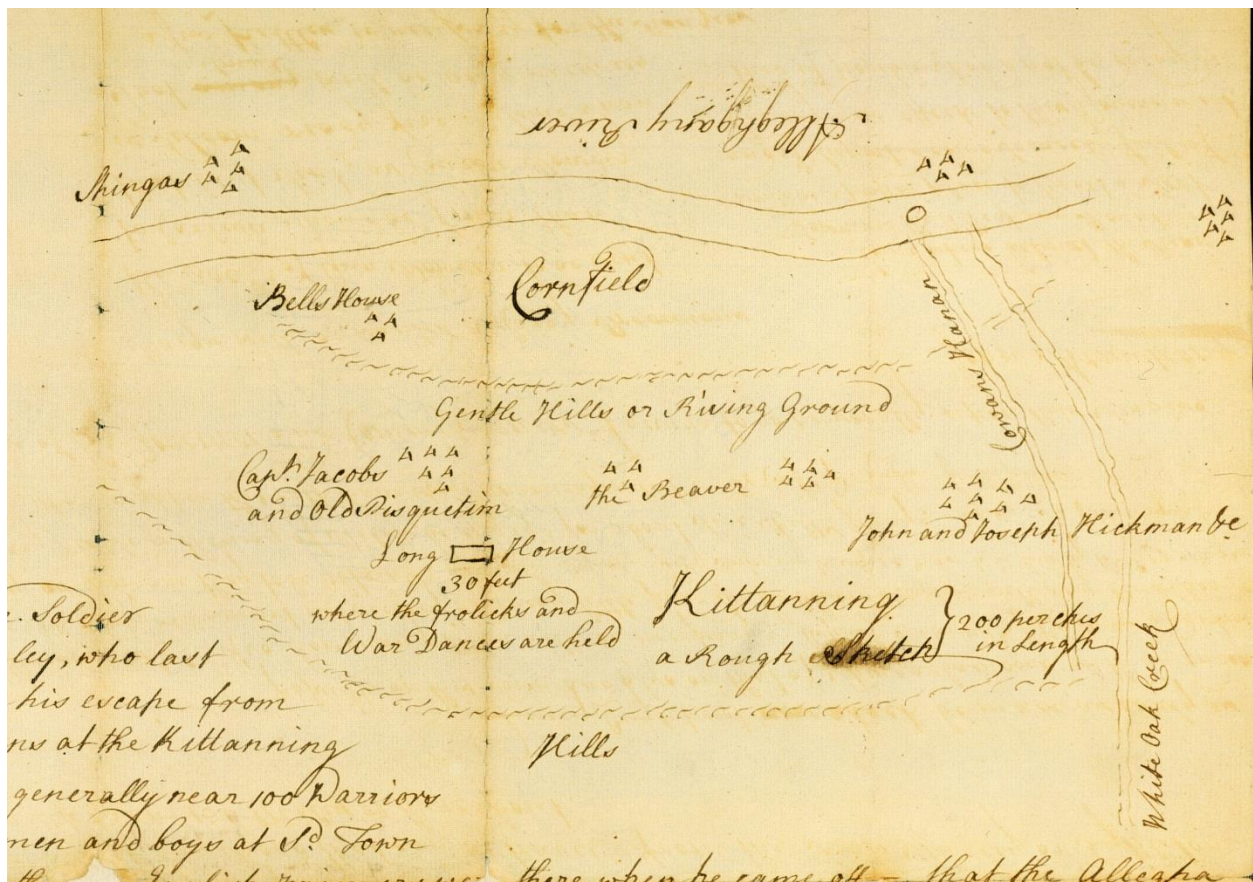 Alleghgany River
Shingas
Bells House
Cornfield
Cowanshanan
Gentle Hills or Rising Ground
Capt. Jacobs
and Old Pisquetim
the Beaver
John and Joseph Hickman &c
Long House
30 feet
where the frolicks and
War Dances are held
Kittanning
a Rough Sketch
200 perches
in Length
White Oak Creek
Hills
Soldier
ley, who last
his escape from
ns at the Kittanning
generally near 100 Warriors
men and boys at Sd. Town
there when he came off – that the Allegha